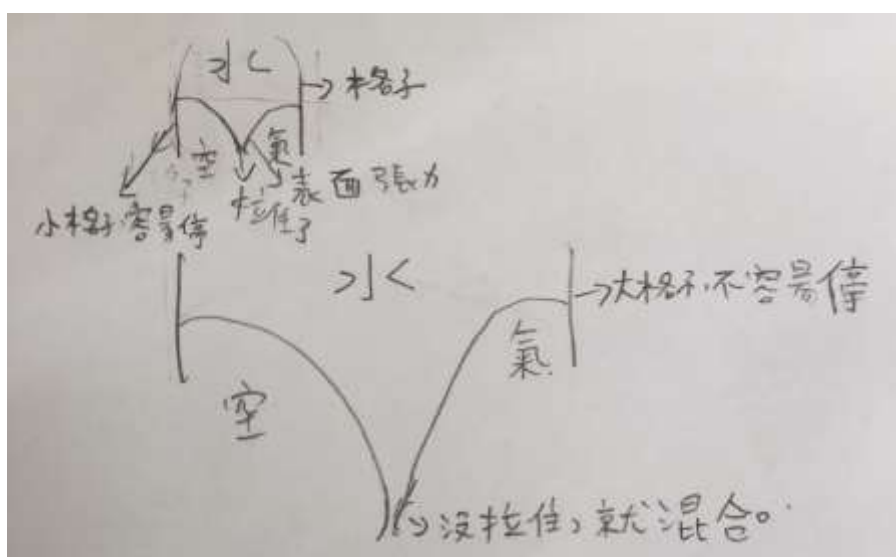 水
→格子
空
氣
表面張力
拉住了
小格子容易停
水
→大格子,不容易停
氣
空
→沒拉住,就混合。